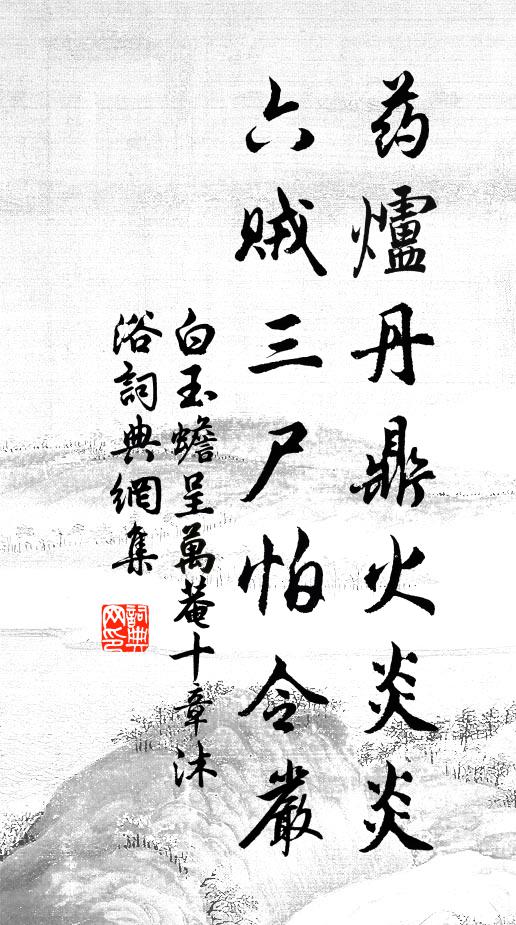 药爐丹鼎火炎炎
六贼三尸怕令嚴
白玉蟾呈萬菴十章沐
浴詞典網集
詞典
网印